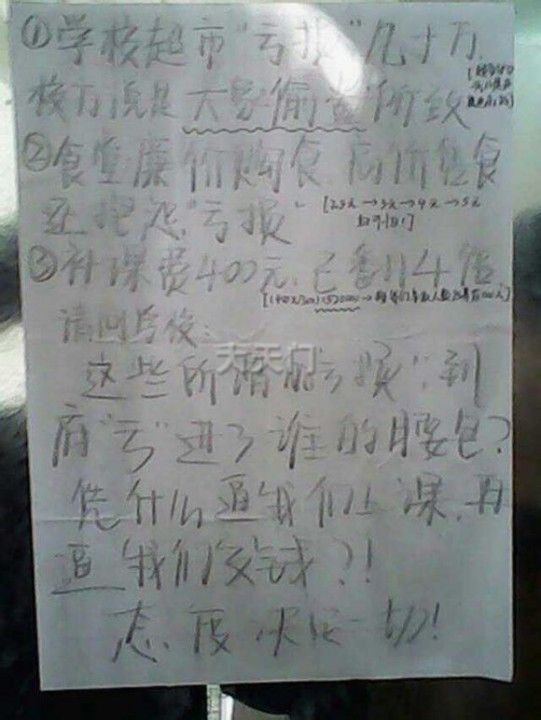 ①学校超市“亏损”几十万,
校方说是大家偷盗所致
②食堂廉价购食,高价售食
还抱怨“亏损”
[2.5元→3元→4元→5元
③补课费400元,已翻4倍
请问学校:
天天门
这些所谓的“亏损”,到
底“亏”进了谁的腰包?
凭什么逼我们上课,再
逼我们交钱?!
态度决定一切!